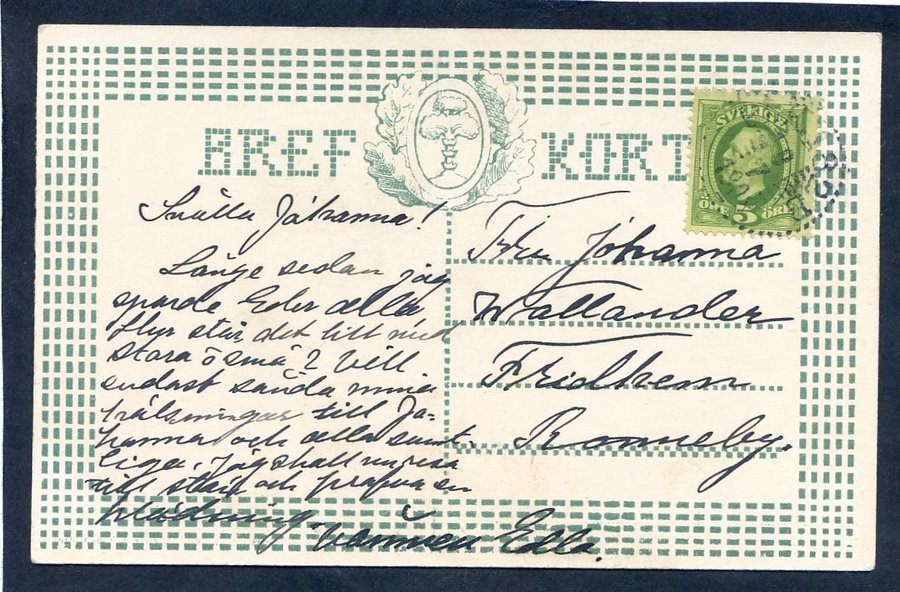 BREF KORT
SVERIGE
ÖRE 5 ÖRE
Snälla Johanna!
Länge sedan jag
sporde Eder alla
Hur står det till med
stora o små? Vill
endast sända mina
hälsningar till Jo-
hanna och alla samt-
liga. Jag skall nu resa
till och en
klädning. vännen Edla.
Fru Johanna
Wallander
Fridhem
Ronneby.